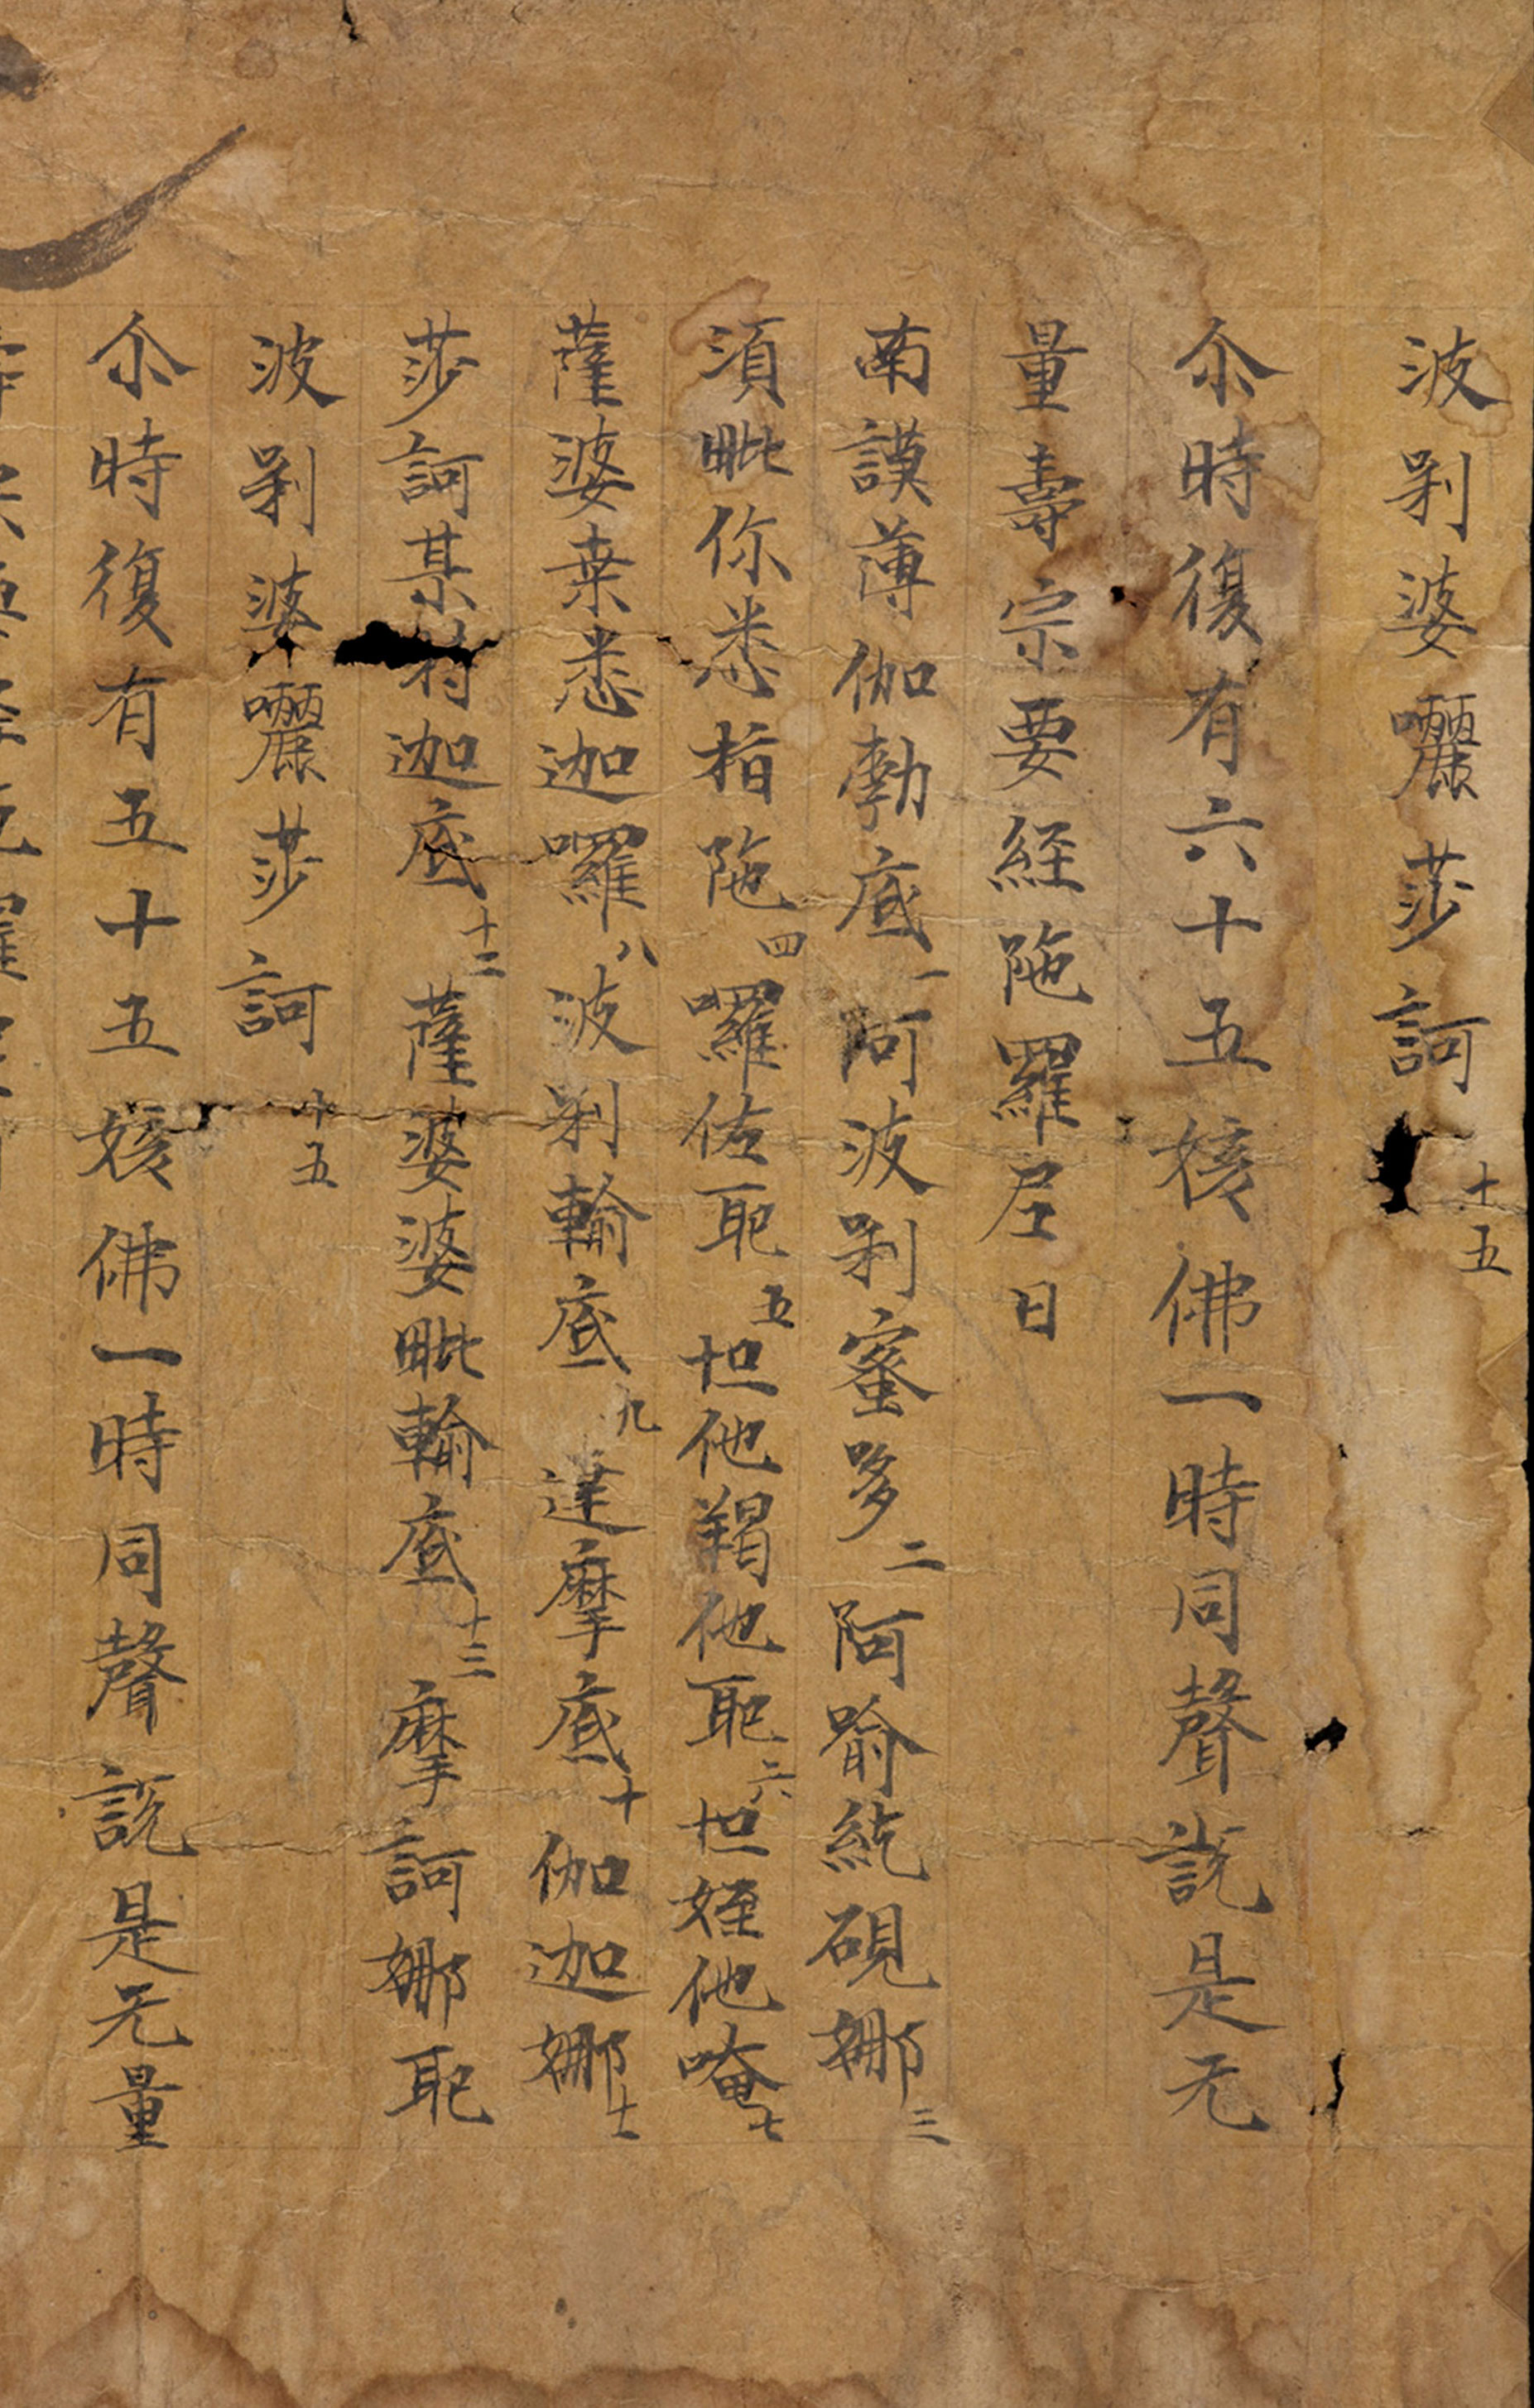 波剎婆𠼝莎訶十五
尒時復有六十五姟佛一時同聲說是无
量壽宗要経陁羅层日
南謨薄伽勃底一阿波剎蜜哆二阿喻紇硯娜三
湏毗你悉指陁四囉佐耶五怛他羯他耶六怛姪他唵七
薩婆桒悉迦囉八波剎輸底九達摩底十伽迦娜十一
莎訶某持迦底十二薩婆婆毗輸底十三摩訶娜耶
波剎婆𠼝莎訶十五
尒時復有五十五姟佛一時同聲說是无量